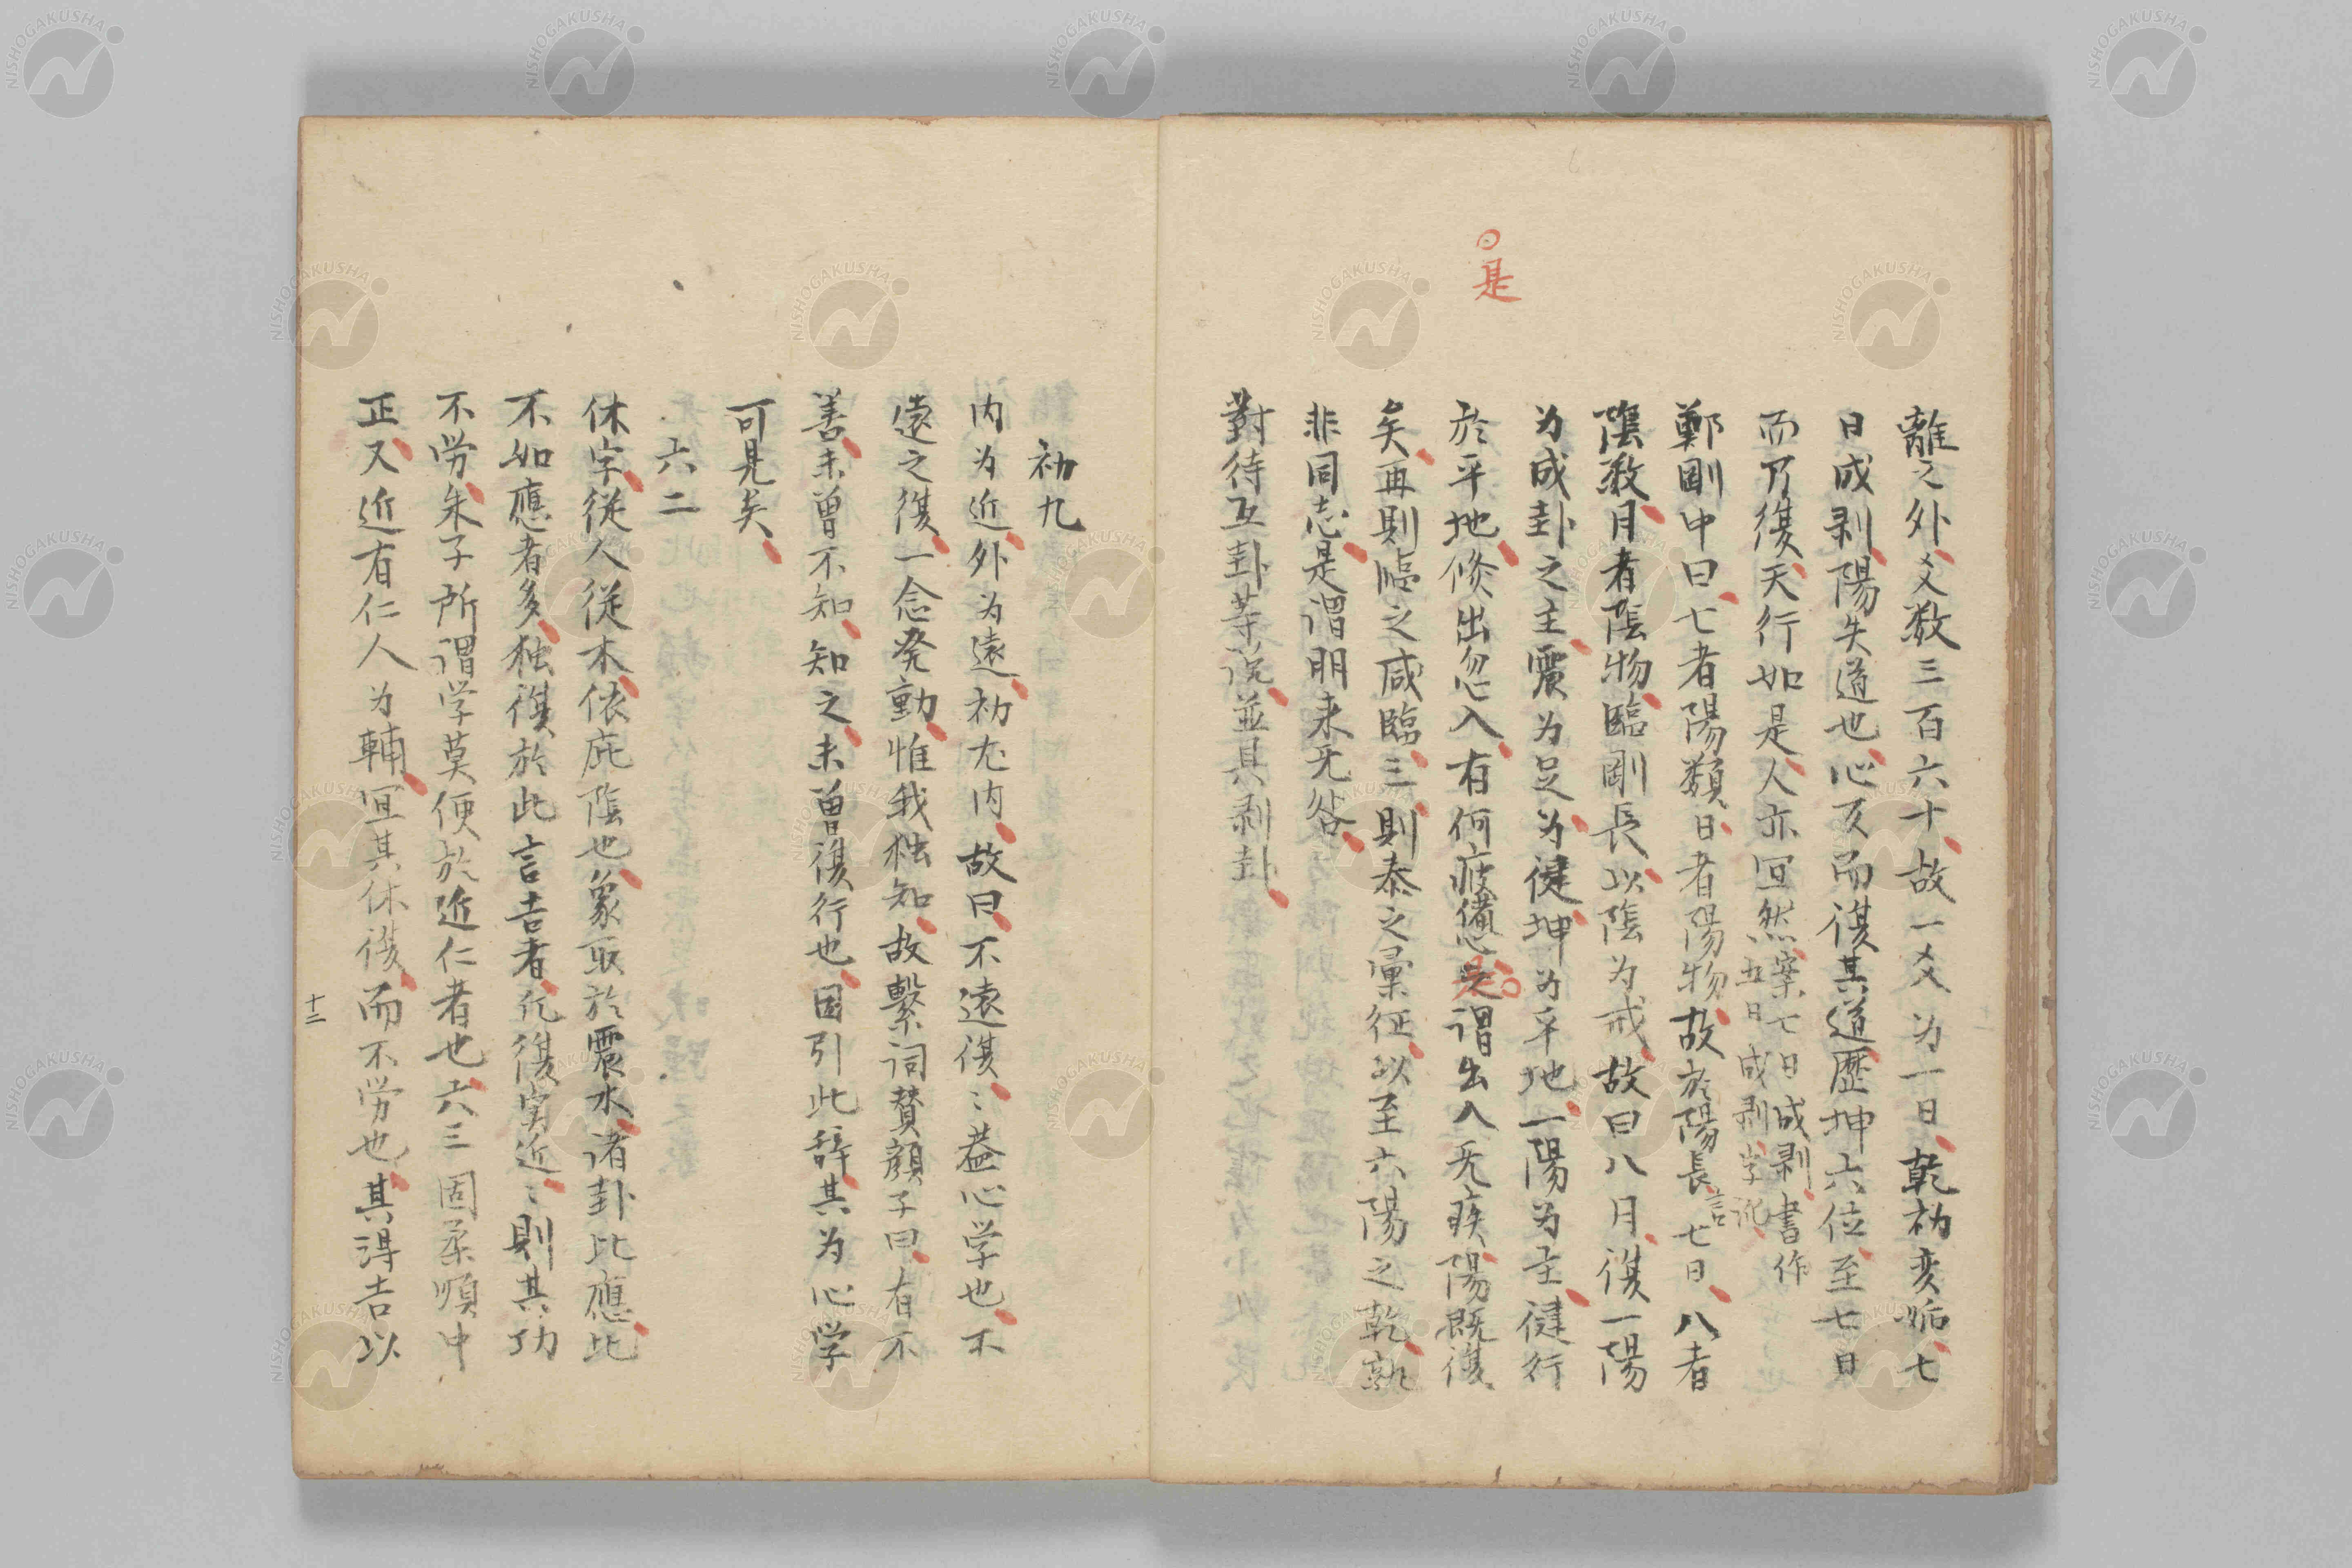 是
離之外爻数三百六十故一爻为一日乾初变姤七
日成剥陽失道也心反而復其道歷坤六位至七日
而乃復天行如是人亦囬然案七日成剥書作
五日成剥字訛
鄭剛中曰七者陽数日者陽物故於陽長言七日八者
陰数月者陰物臨剛長以陰为戒故曰八月復一陽
为成卦之主震为足为健坤为平地一陽为主健行
於平地倏出忽入有何疲憊是謂出入无疾陽既復
矣再則臨之咸臨三則泰之彙征以至六陽之乾孰
非同志是謂朋来无咎
對待互卦等説並具剥卦
初九
内为近外为遠初尤内故曰不遠復ミ蓋心学也不
遠之復一念発動惟我独知故繫詞賛顔子曰有不
善未曽不知知之未曽復行也因引此辞其为心学
可見矣
六二
休字従人従木依庇陰也象取於震木諸卦比應比
不如應者多独復於此言吉者凢復実近ミ則其功
不労朱子所謂学莫便於近仁者也六三固柔順中
正又近有仁人为輔冝其休復而不労也其得吉以
十二
NISHOGAKUSHA